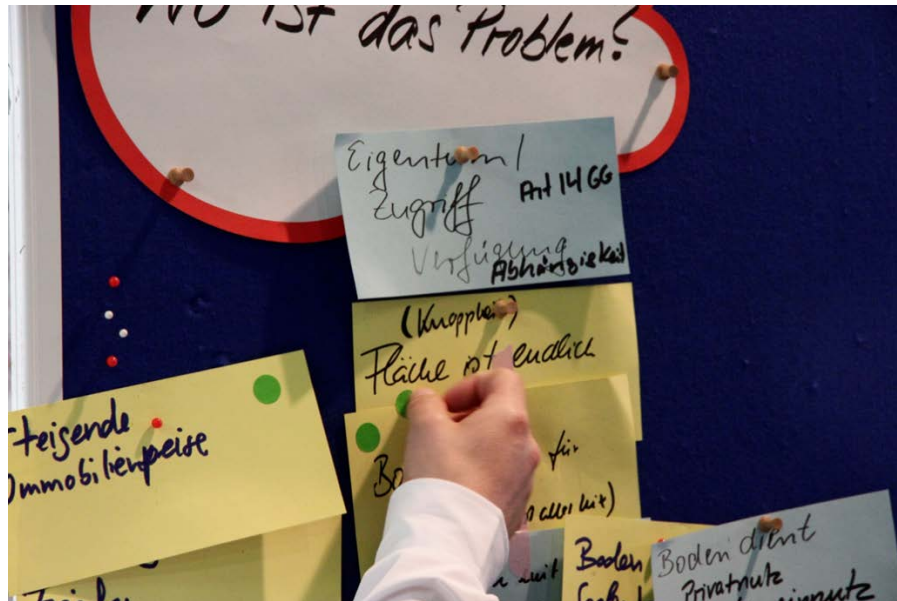 Wo ist das Problem?
Eigentum /
Zugriff Art 14 GG
Verfügung
Abhängigkeit
(Knappheit)
Fläche ist endlich
Steigende
Immobilienpeise
für
aller mit)
mit
Boden
Boden dient
Privatnutz